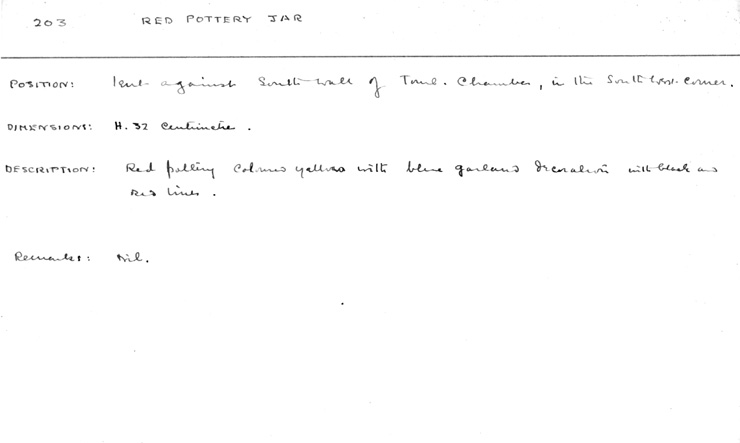 203 RED POTTERY JAR
POSITION: leant against South-wall of Tomb. Chamber, in the South West-corner.
DIMENSIONS: H. 32 Centimetre.
DESCRIPTION: Red pottery coloured yellow with blue garland decoration with black and
red lines.
Remarks: Nil.